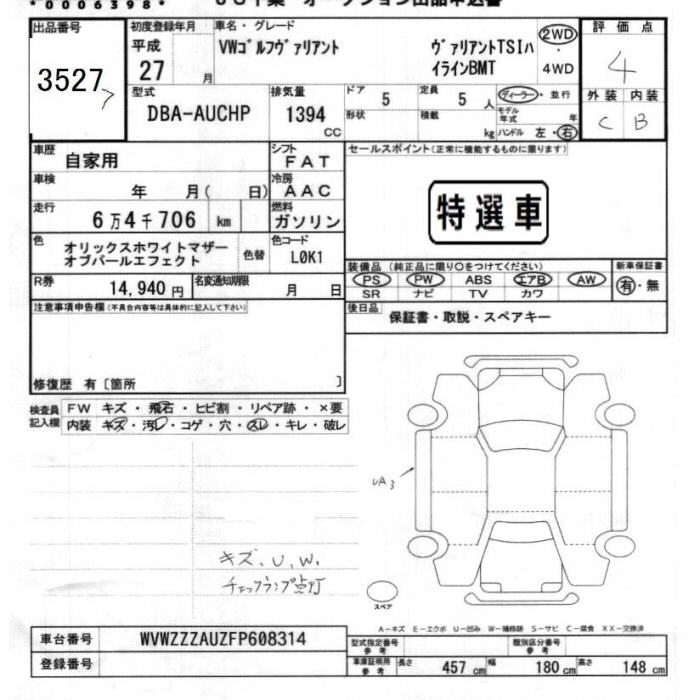 *0006398*
出品番号
3527
初度登録年月
平成
27 月
車名・グレード
VWゴルフヴァリアント ヴァリアントTSIハ
イラインBMT
2WD
4WD
評価点
4
外装 内装
C B
型式
DBA-AUCHP
排気量
1394
CC
ドア
5
形状
定員
5 人
積載
kg
ディーラー・並行
モデル
年式 年
ハンドル 左・右
車歴
自家用
シフト
FAT
車検
年 月( 日)
冷房
AAC
走行
6万4千706 km
燃料
ガソリン
色
オリックスホワイトマザー
オブパールエフェクト
色替
色コード
L0K1
R券
14,940円
名変通知期限
月 日
セールスポイント(正常に機能するものに限ります)
特選車
装備品 (純正品に限り○をつけてください)
PS PW ABS エアB AW
SR ナビ TV カワ
新車保証書
有・無
後日品
保証書・取説・スペアキー
注意事項申告欄(不具合内容等は具体的に記入して下さい)
修復歴 有〔箇所 〕
検査員
記入欄
FW キズ・飛石・ヒビ割・リペア跡・×要
内装 キズ・汚レ・コゲ・穴・スレ・キレ・破レ
UA3
キズ、U、W、
チェックランプ点灯
スペア
A-キズ E-エクボ U-凹み W-補修跡 S-サビ C-腐食 XX-交換済
車台番号
WVWZZZAUZFP608314
登録番号
型式指定番号
参考
類別区分番号
参考
車庫証明用
参考
長さ 457 cm 幅 180 cm 高さ 148 cm